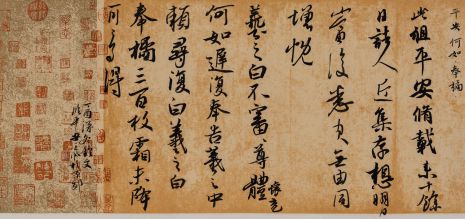 平安何如奉橘
此粗平安脩載來十餘
日諸人近集存想明日
當復悉来無由同
增慨
羲之白不審尊體
何如遲復奉告羲之中
賴尋復白羲之白
奉橘三百枚霜未降
可多得